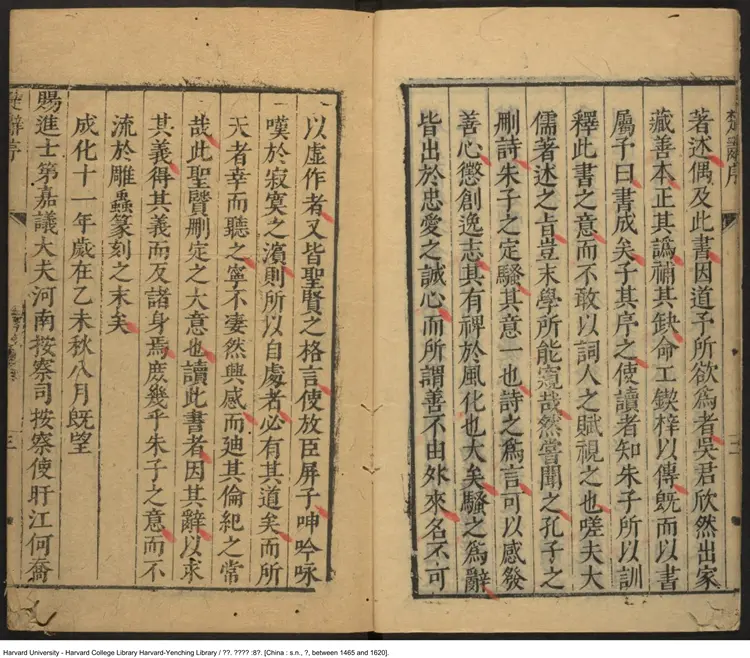 楚辭序
著述偶及此書因道予所欲為者吳君欣然出家
藏善本正其譌補其缺命工鍥梓以傳旣而以書
屬予曰書成矣子其序之使讀者知朱子所以訓
釋此書之意而不敢以詞人之賦視之也嗟夫大
儒著述之旨豈末學所能窺哉然嘗聞之孔子之
刪詩朱子之定騷其意一也詩之為言可以感發
善心懲創逸志其有裨於風化也大矣騷之為辭
皆出於忠愛之誠心而所謂善不由外來名不可
二
以虛作者又皆聖賢之格言使放臣屏子呻吟咏
嘆於寂寞之濱則所以自處者必有其道矣而所
天者幸而聽之寧不凄然興感而廸其倫紀之常
哉此聖賢刪定之大意也讀此書者因其辭以求
其義得其義而反諸身焉庶幾乎朱子之意而不
流於雕蟲篆刻之末矣
成化十一年歲在乙未秋八月旣望
賜進士第嘉議大夫河南按察司按察使盱江何喬
楚辭序
三
Harvard University - Harvard College Library Harvard-Yenching Library / ??. ???? :8?. [China : s.n., ?, between 1465 and 1620].